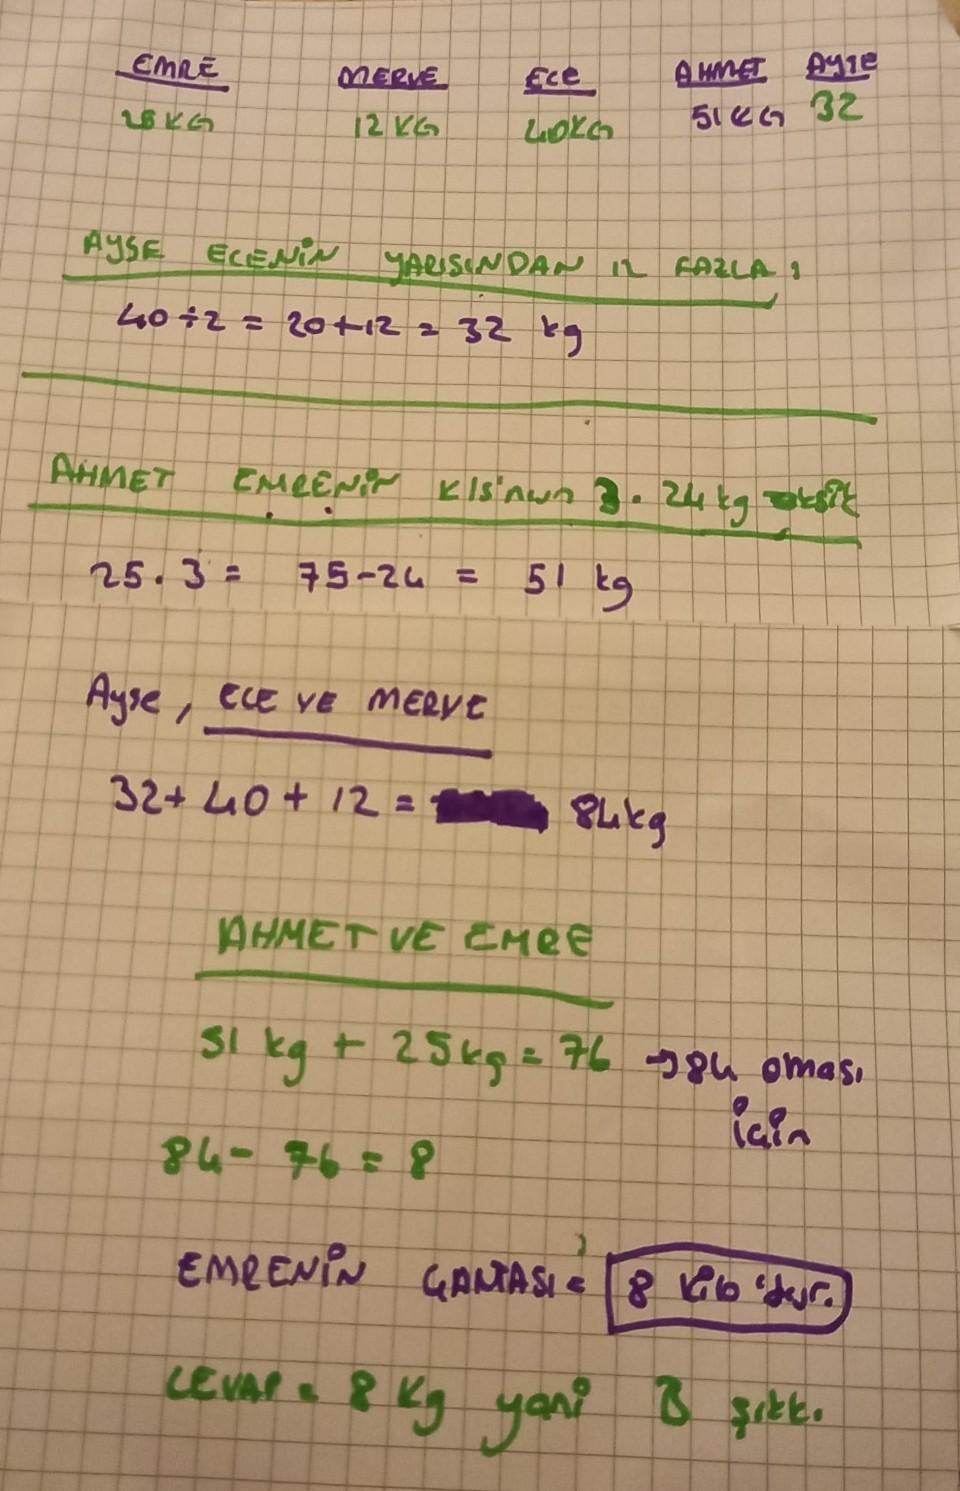 EMRE MERVE ECE AHMET AYŞE
25 KG 12 KG 40KG 51 KG 32
AYŞE ECENİN YARISINDAN 12 FAZLA :
40 ÷ 2 = 20 + 12 = 32 kg
AHMET EMRENİN 3. 24 kg eksik
25 . 3 = 75 - 24 = 51 kg
Ayşe, ECE VE MERVE
32 + 40 + 12 = 84kg
AHMET VE EMRE
51 kg + 25 kg = 76 → 84 oması
için
84 - 76 = 8
EMRENİN ÇANTASI = 8 kilo'dur.
CEVAP = 8 kg yani B şıkkı